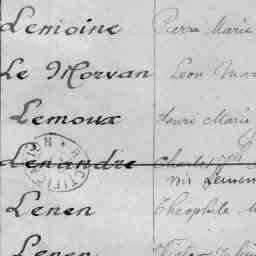 Lemoine Pierre Marie
Le Morvan Léon Mar
Lemoux Henri Marie
Lenandre Charles
RECTIFICATION
Lenen Théophile M
Lenen Victor